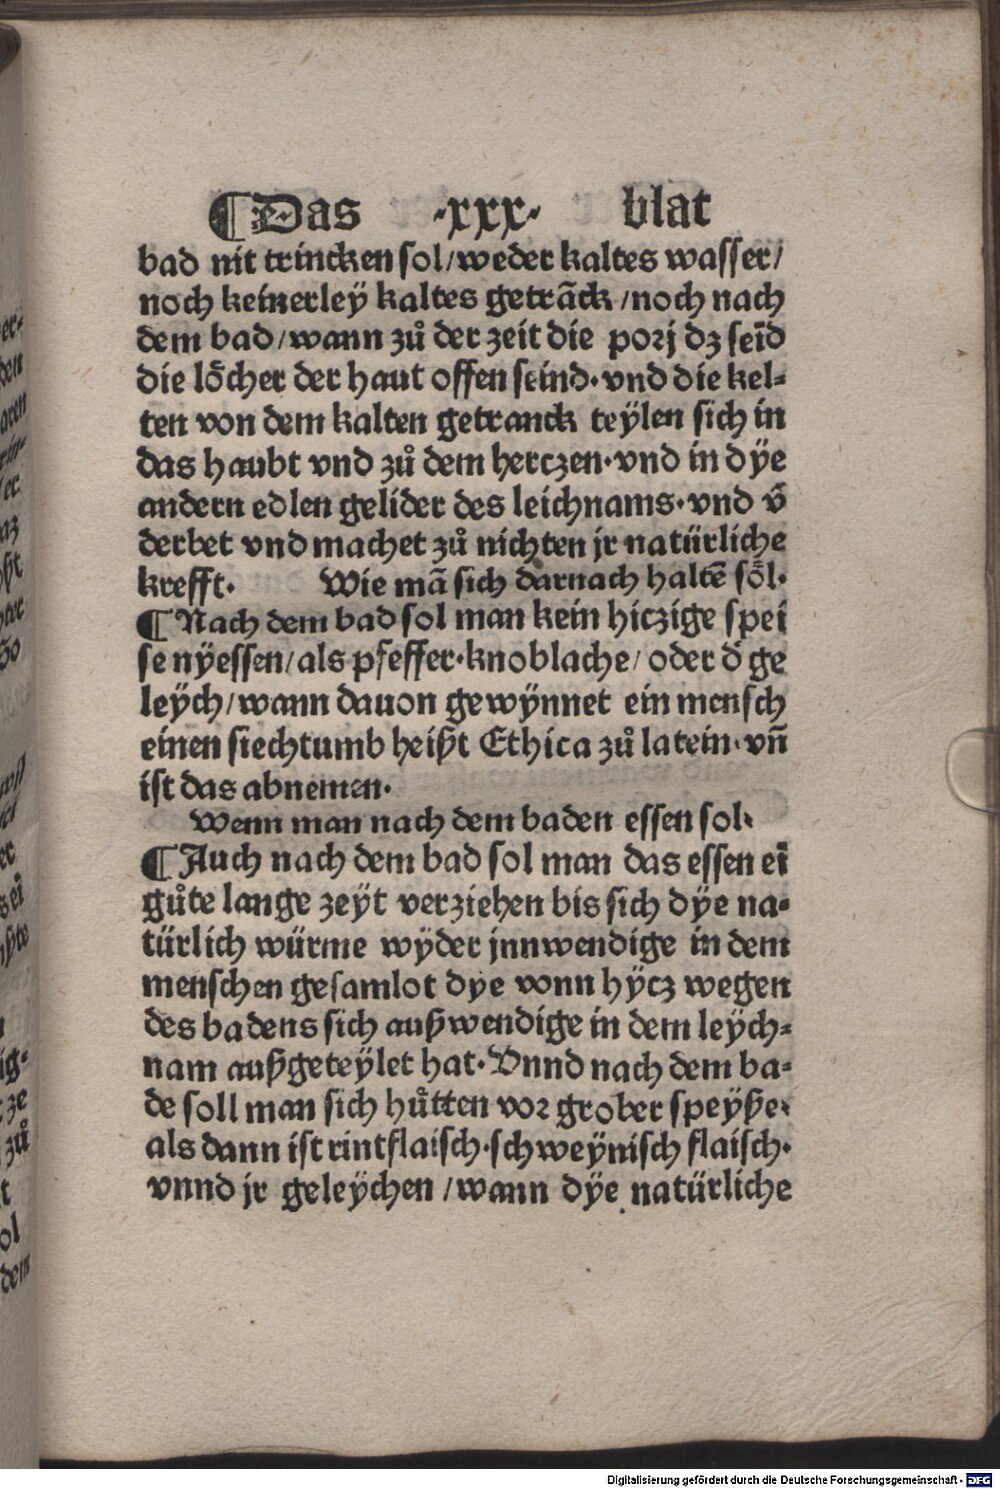 ¶Das ·xxx· blat
bad nit trincken sol/weder kaltes wasser/
noch keinerleÿ kaltes geträck/noch nach
dem bad/wann zů der zeit die porj dz seīd
die lo̊cher der haut offen seind·vnd die kel-
ten von dem kalten getranck teÿlen sich in
das haubt vnd zů dem herczen·vnd in dÿe
andern edlen gelider des leichnams·vnd v̄
derbet vnd machet zů nichten jr natürliche
krefft. Wie mā sich darnach haltē söl.
¶Nach dem bad sol man kein hiczige spei
se nÿessen/als pfeffer·knoblache/oder d̄ ge
leÿch/wann dauon gewÿnnet ein mensch
einen siechtumb heißt Ethica zů latein·vn̄
ist das abnemen.
Wenn man nach dem baden essen sol.
¶Auch nach dem bad sol man das essen eī
gůte lange zeÿt verziehen bis sich dÿe na-
türlich würme wÿder jnnwendige in dem
menschen gesamlot dÿe vonn hÿcz wegen
des badens sich außwendige in dem leÿch-
nam außgeteÿlet hat·Vnnd nach dem ba-
de soll man sich hůtten vor grober speÿße·
als dann ist rintflaisch·schweÿnisch flaisch·
vnnd jr geleÿchen/wann dÿe natürliche
Digitalisierung gefördert durch die Deutsche Forschungsgemeinschaft - DFG